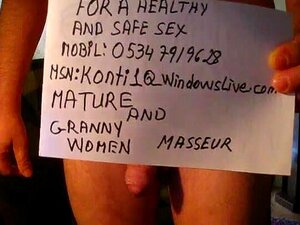 FOR A HEALTHY
AND SAFE SEX
MOBİL: 0534 7919628
MSN: Konti1@WindowsLive.com
MATURE
AND
GRANNY
WOMEN MASSEUR